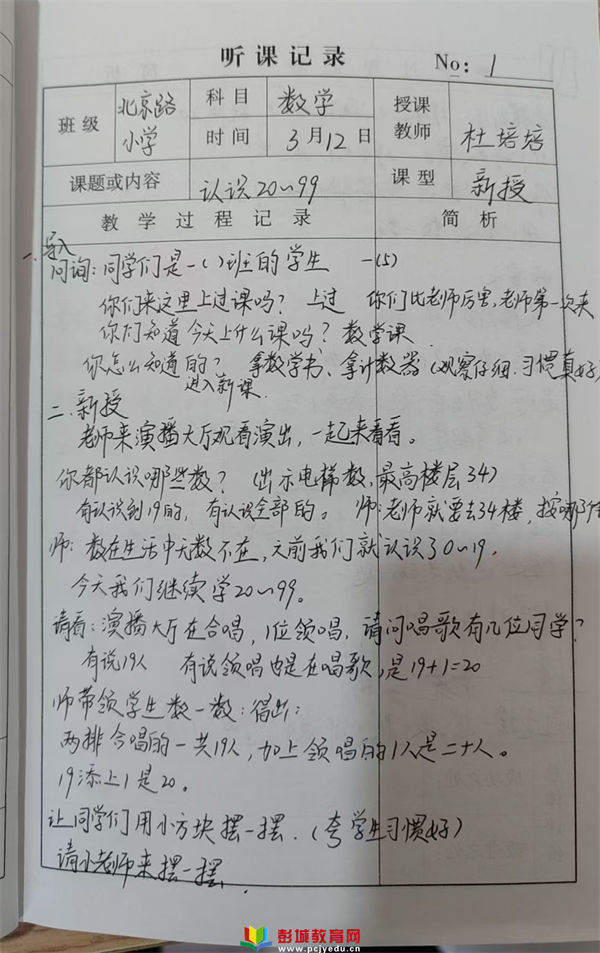 听课记录 No: 1
班级 北京路小学 科目 数学 授课教师 杜培培
时间 3月12日
课题或内容 认识20~99 课型 新授
教学过程记录 简析
一、导入
问询:同学们是一( )班的学生 一(5)
你们来这里上过课吗? 上过 你们比老师厉害,老师第一次来
你们知道今天上什么课吗? 数学课
你怎么知道的? 拿数学书、拿计数器(观察仔细.习惯真好)
进入新课.
二、新授
老师来演播大厅观看演出,一起来看看。
你都认识哪些数? (出示电梯数,最高楼层34)
有认识到19的, 有认识全部的。 师:老师就要去34楼,按哪个
师:数在生活中无数不在,之前我们就认识了0~19,
今天我们继续学20~99。
请看:演播大厅在合唱,1位领唱,请问唱歌有几位同学?
有说19人 有说领唱也是在唱歌,是19+1=20
师带领学生数一数:得出:
两排合唱的一共19人,加上领唱的1人是二十人。
19添上1是20。
让同学们用小方块摆一摆.(夸学生习惯好)
请小老师来摆一摆.
彭城教育网
www.pcjyedu.com